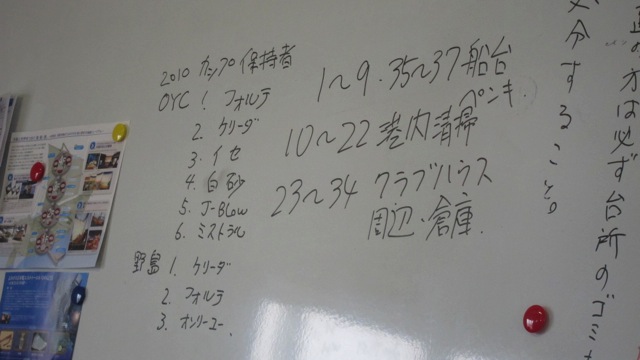 2010 カップ保持者
OYC 1 フォルテ
2. ケリーダ
3. イセ
4. 白砂
5. J-Blow
6. ミストラル
野島 1. ケリーダ
2. フォルテ
3. オンリーユー.
1〜9.35〜37船台
ペンキ.
10〜22港内清掃
23〜34 クラブハウス
周辺.倉庫.
方は必ず台所のゴミ
分すること。